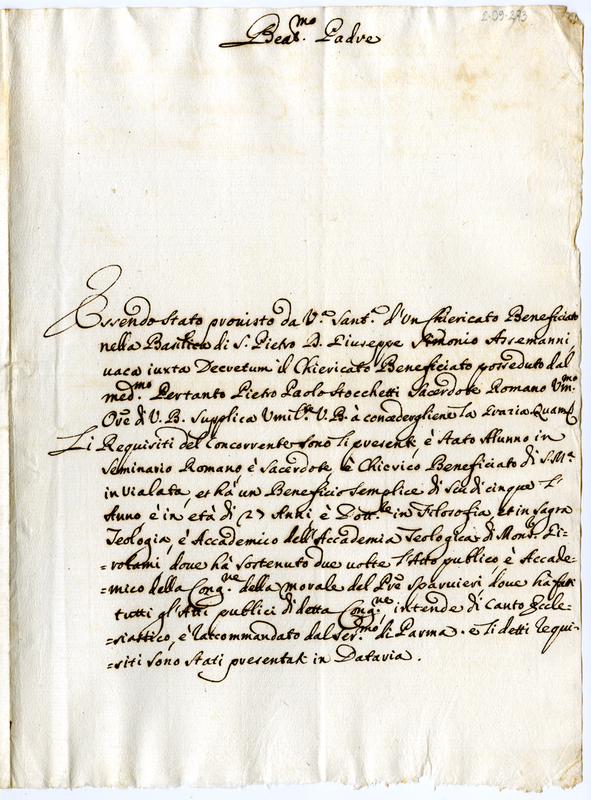 2-09-293
Beat.mo Padre
Essendo stato provisto da V.a Sant.a d'un Chiericato Beneficiato
nella Basilica di S. Pietro D. Giuseppe Simonio Assemanni
vaca iuxta Decretum il Chiericato Beneficiato posseduto dal
med.mo Pertanto Pietro Paolo Stocchetti Sacerdote Romano Um.mo
Ore di V. B. Supplica Umil.te V. B. à concedergliene la Grazia Quam
Li Requisiti del Concorrente sono li presenti, è stato Alunno in
Seminario Romano, è Sacerdote, è Chierico Beneficiato di S. M.a
in via lata, et hà un Beneficio semplice di Sc.di cinque l'
Anno è in età di 27 Anni, è Dott.re in Filosofia, et in sagra
Teologia, è Accademico dell'Accademia Teologica di Mons. Gi-
=rolami, dove hà sostenuto due volte l'Atto publico, è Accade-
=mico della Cong.ne della Morale del P.re Sparvieri, dove hà fatti
tutti gl'Atti publici di detta Cong.ne, intende di Canto Eccle-
=siattico, è raccommandato dal Ser.mo di Parma. e li detti requi-
=siti sono stati presentati in Dataria.